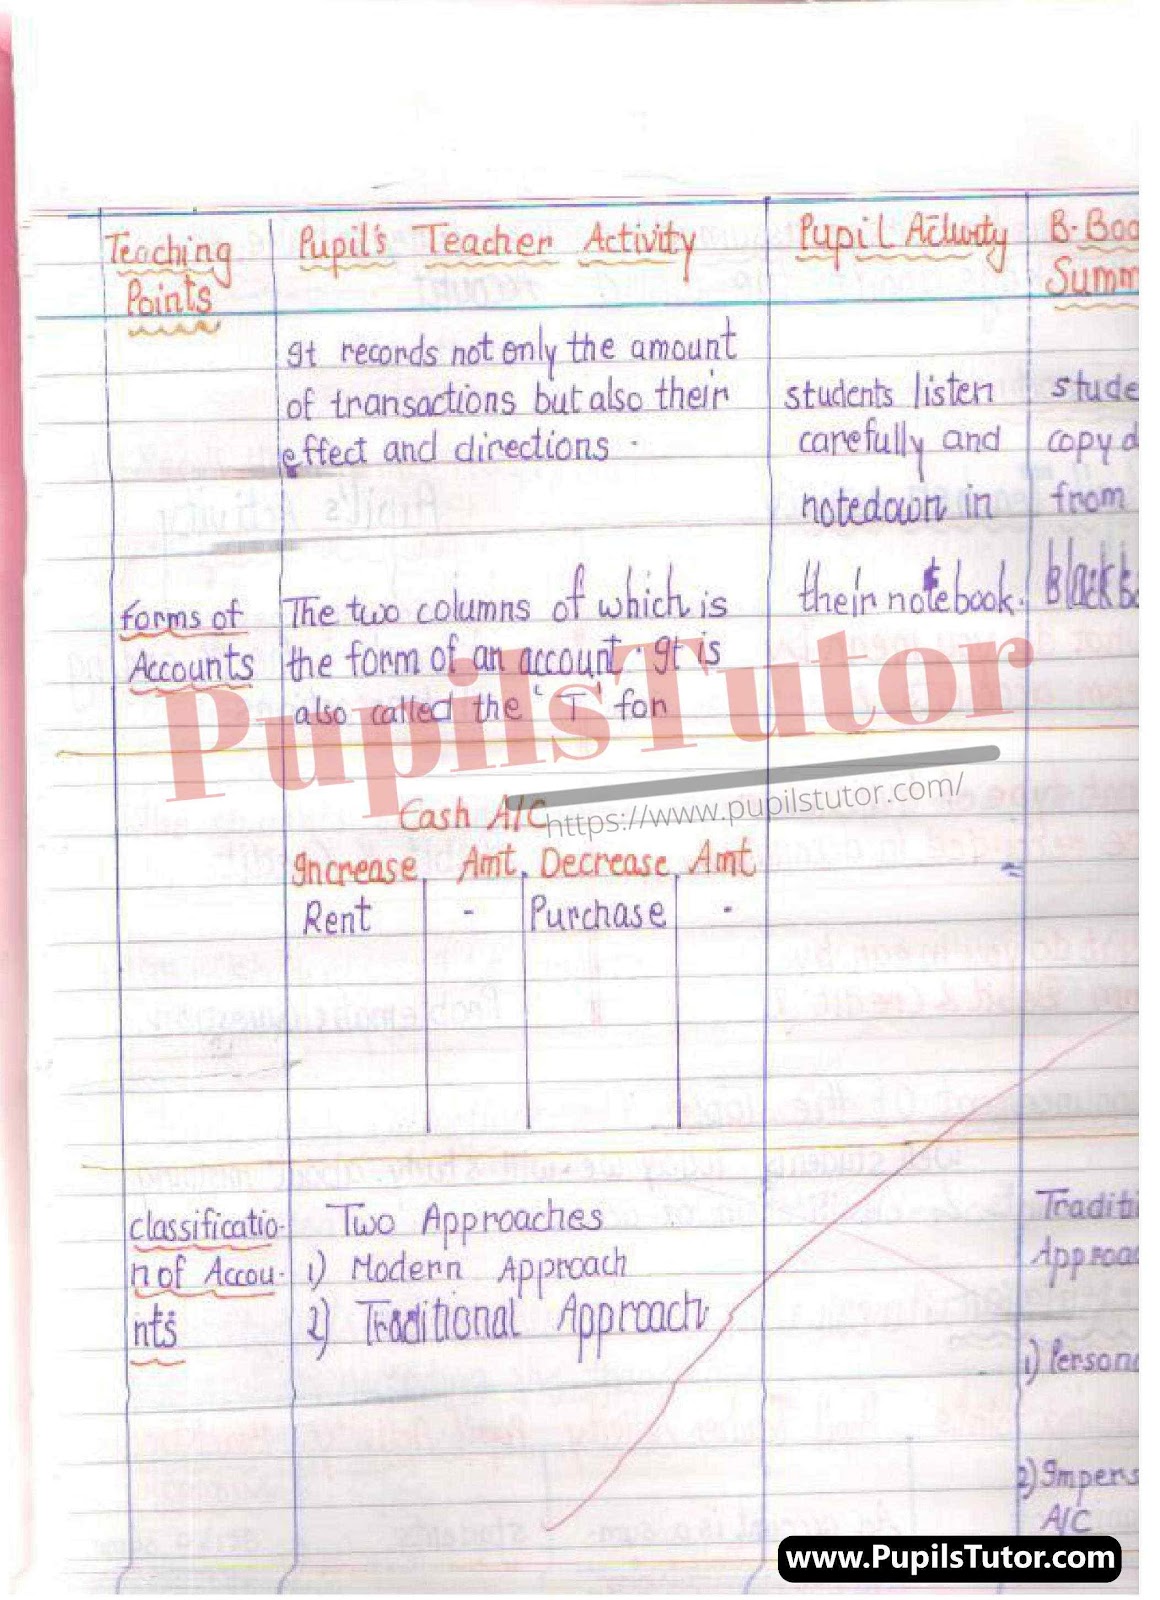 Teaching Points
Pupil's Teacher Activity
Pupil Activity
B-Boa
Summ
It records not only the amount
of transactions but also their
effect and directions.
students listen
carefully and
notedown in
their notebook.
stude
copy d
from
blackb
Forms of
Accounts
The two columns of which is
the form of an account. It is
also called the 'T' for
PupilsTutor
https://www.pupilstutor.com/
Cash A/C
Increase Amt. Decrease Amt
Rent - Purchase -
Classificatio-
n of Accou-
nts
Two Approaches
1) Modern Approach
2) Traditional Approach
Traditi
Approa
1) Person
2) Impers
A/C
www.PupilsTutor.com